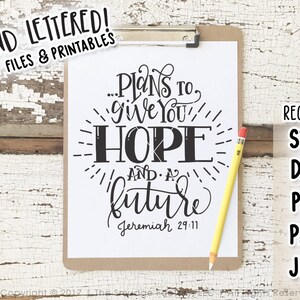 ND LETTERED!
FILES & PRINTABLES
...PLANS TO
give YOU
HOPE
AND · A
future
Jeremiah 29:11
REC
S
D
P
P
J
Copyright © 2017 | The